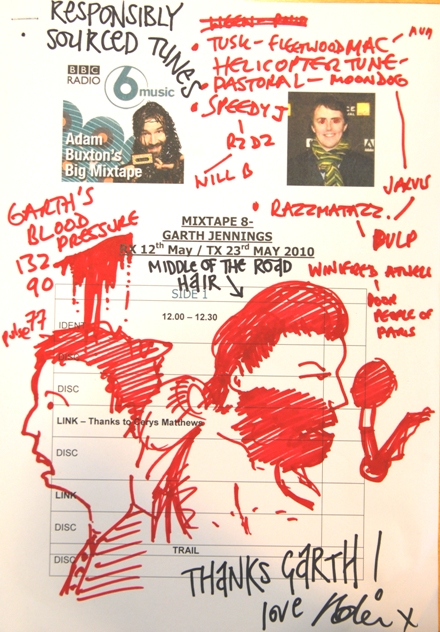 RESPONSIBLY
SOURCED TUNES
• TUSK - FLEETWOOD MAC
• HELICOPTER TUNE -
• PASTORAL - MOONDOG
• SPEEDY J
R2D2
WILL B
BBC
RADIO
6 music
Adam
Buxton's
Big Mixtape
JARVIS
• RAZZMATAZZ
PULP
WINIFRED ATWELL
POOR
PEOPLE OF
PARIS
GARTH'S
BLOOD
PRESSURE
132
90
pulse 77
MIXTAPE 8-
GARTH JENNINGS
RX 12th May / TX 23rd MAY 2010
MIDDLE OF THE ROAD
HAIR
SIDE 1
12.00 – 12.30
IDENT
DISC
DISC
LINK – Thanks to Cerys Matthews
DISC
LINK
DISC
TRAIL
DISC
THANKS GARTH!
love Adam x